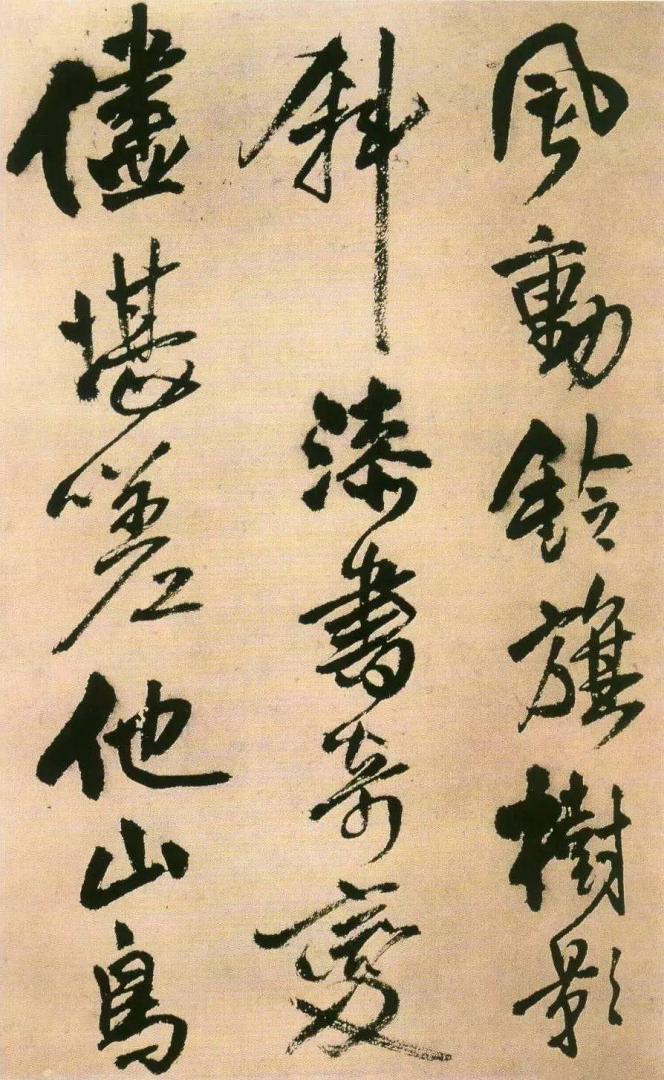 風動鈴旗樹影
斜漆書奇變
儘堪嗟他山鳥